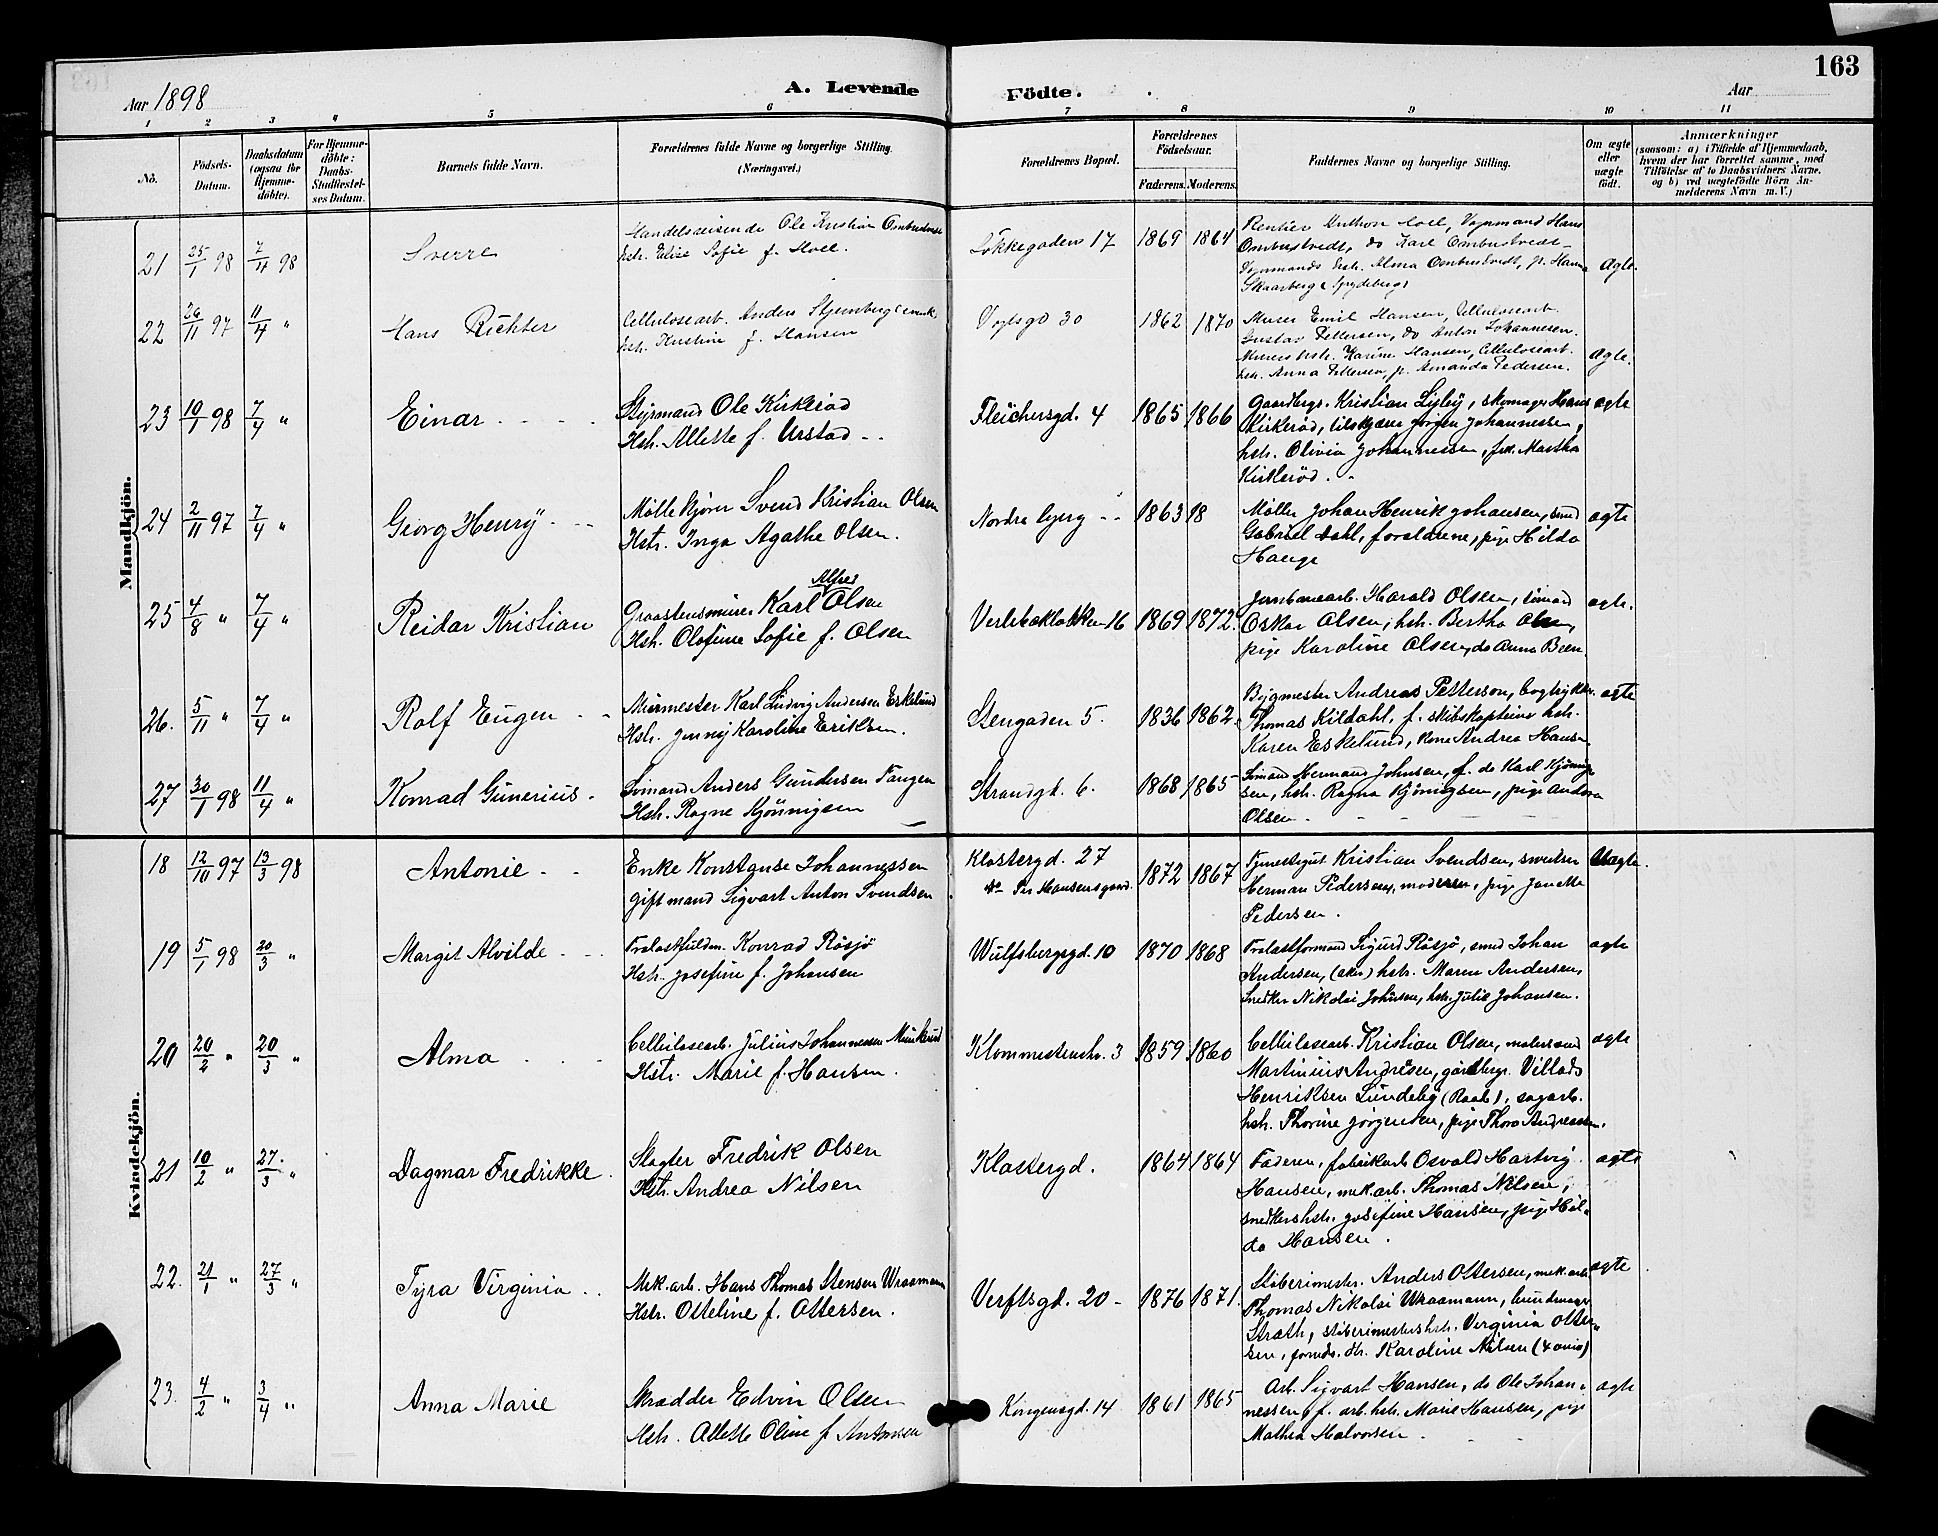 163
Aar 1898
A. Levende
Födte.
Aar
1 2 3 4 5 6 7 8 9 10 11
No.
Födsels-Datum.
Daabsdatum (ogsaa for Hjemme-döbte).
For Hjemme-döbte: Daabs-Stadfæstel-ses Datum.
Barnets fulde Navn.
Forældrenes fulde Navne og borgerlige Stilling. (Næringsvei.)
Forældrenes Bopæl.
Forældrenes Födselsaar.
Faderens. Moderens.
Faddernes Navne og borgerlige Stilling.
Om ægte eller uægte födt.
Anmærkninger
(saasom: a) i Tilfælde af Hjemmedaab, hvem der har forrettet samme, med Tilföielse af to Daabsvidners Navne, og b) ved uægtefödte Börn Anmelderens Navn m. V.)
Mandkjön.
21 25/1 98 7/4 98 Sverre
Handelsreisende Ole Kristian Ombustvedt
Hstr. Elise Sofie f. Hoel.
Løkkegaden 17 1869 1864
Rentier Anthon Hoel, Vognmand Hans
Ombustvedt, do Karl Ombustvedt
Vognmands hstr. Alma Ombustvedt, p. Hanna
Skaarberg (Spydeberg)
Ægte.
22 26/11 97 11/4 " Hans Richter
Cellulosearb. Anders Stjernberg (svensk
hstr. Kristine f. Hansen
Vogtsgd 30 1862 1870
Murer Emil Hansen, Cellulosearb.
Gustav Pettersen, do Anton Johannesen.
Murers hstr. Karine Hansen, Cellulosearb.
hstr. Anna Pettersen, p. Amanda Pedersen.
Ægte.
23 10/1 98 7/4 " Einar
Styrmand Ole Kirkerød
Hstr. Allette f. Urstad
Fleichersgd. 4 1865 1866
Gaardbrgr. Kristian Lisby, skomager Hans
Kirkerød, tilskjærer Jørgen Johannessen,
hstr. Olivia Johannessen, frk. Martha
Kirkerød.
ægte
24 2/11 97 7/4 " Georg Henry
Møllekjører Svend Kristian Olsen
Hstr. Inga Agathe Olsen.
Nordre bjerg 1863 18
Møller Johan Henrik Johansen, smed
Gabriel Dahl, forældrene, pige Hilda
Hauge
ægte
25 4/8 " 7/4 " Reidar Kristian
Graastensmurer Karl Alfred Olsen
Hstr. Olefine Sofie f. Olsen
Verlebakløkken 16 1869 1872.
Jernbanearb. Harald Olsen, sømand
Oskar Olsen, hstr. Bertha Olsen,
pige Karoline Olsen, do Anna Been.
ægte.
26. 5/11 " 7/4 " Rolf Eugen
Murmester Karl Ludvig Andersen Eskelund
Hstr. Jenny Karoline Eriksen.
Stengaden 5. 1836 1862.
Bygmester Andreas Petterson, bogtrykker
Thomas Kildahl, f. skibskapteins hstr.
Karen Eskelund, kone Andrea Hansen
ægte
27 30/1 98 11/4 " Konrad Gunerius
Sømand Anders Gundersen Tangen
Hstr. Ragne Kjønnigsen
Strandgd. 6. 1868 1865
Sømand Herman Johnsen, f. do Karl Kjønnig-
sen, hstr. Ragna Kjønigsen, pige Andrea
Olsen
Kvindekjön.
18 12/10 97 13/3 98 Antonie
Enke Konstanse Johannessen
gift mand Sigvart Anton Svendsen
Klostergd. 27
do Per Hansensgaard
1872 1867
Tjenestegut Kristian Svendsen, sveitser
Herman Pedersen, moderen, pige Janetta
Pedersen.
Uægte.
19 5/1 98 20/3 " Margit Alvilde
Fralastfuldm. Konrad Røsjø
Hstr. Josefine f. Johansen
Wulfsbergsgd. 10 1870 1868
Fralastformand Sigurd Røsjø, smed Johan
Andersen, (Aker) hstr. Maren Andersen,
Snedker Nikolai Johnsen, hstr. Julie Johansen.
ægte
20 20/2 " 20/3 " Alma
Cellulosearb. Julius Johannessen Munkerud
Hstr. Marie f. Hansen.
Klommestenstr. 3 1859 1860
Cellulosearb. Kristian Olsen, matersmd
Martinius Andresen, gårdbrgr. Villads
Henriksen Lundeby (Raade), sagarb.
hstr. Thorine Jørgensen, pige Thora Andreassen.
ægte
21 10/2 " 27/3 " Dagmar Fredrikke
Slagter Fredrik Olsen
Hstr. Andrea Nilsen
Klostergd. 1864 1864
Faderen, fabrikarb Osvald Hartvig
Hansen, mek.arb. Thomas Nilsen,
snedkers hstr. Josefine Hansen, pige Hil-
da Hansen.
ægte
22. 21/1 " 27/3 " Tyra Virginia
Mek.arb. Hans Thomas Stensen Wraamann
Hstr. Otteline f. Ottersen.
Verftsgd. 20 1876 1871.
Støberimester. Anders Ottersen, mek.arb.
Thomas Nikolai Wraamann, bundmager
Strøth, støberimesters hstr. Virginia Otter-
sen, formds. str. Karoline Nilsen
ægte
23. 4/2 " 3/4 " Anna Marie
Skrædder Edvin Olsen
Hstr. Allette Oline f. Antonsen
Kongensgd. 14 1861 1865
Arb. Sigvart Hansen, do Ole Johan-
nessen, f. arb. hstr. Marie Hansen, pige
Mathea Halvorsen
ægte